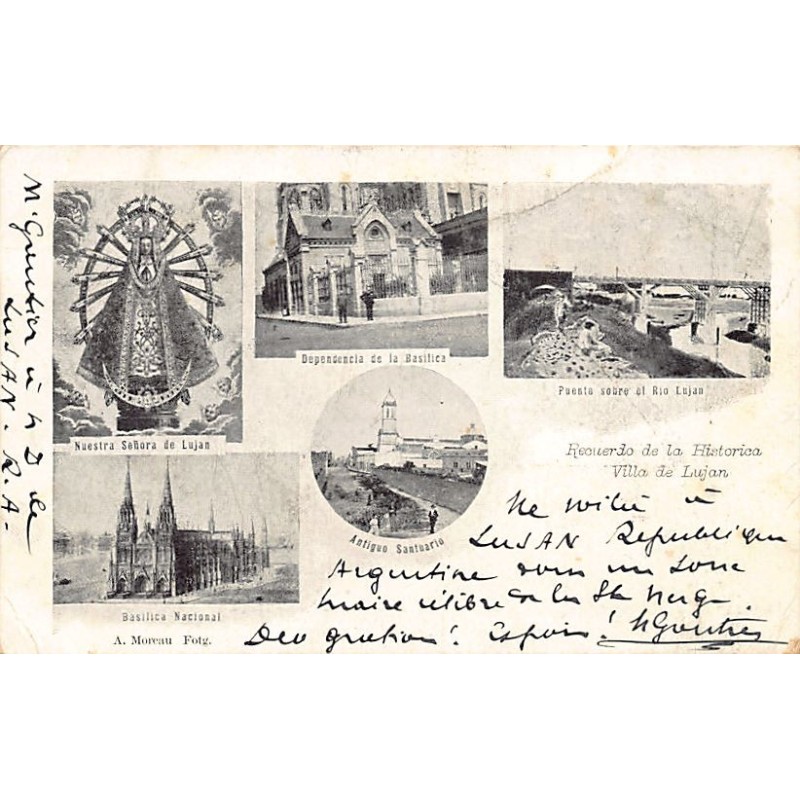 Nuestra Señora de Lujan
Dependencia de la Basilica
Puente sobre el Rio Lujan
Antiguo Santuario
Basilica Nacional
A. Moreau Fotg.
Recuerdo de la Historica
Villa de Lujan
Me à
LUJAN Republique
Argentine dans un
célèbre de la Ste Vierge.
Deo gratias! Espoir!
à N D de
LUJAN. R. A-